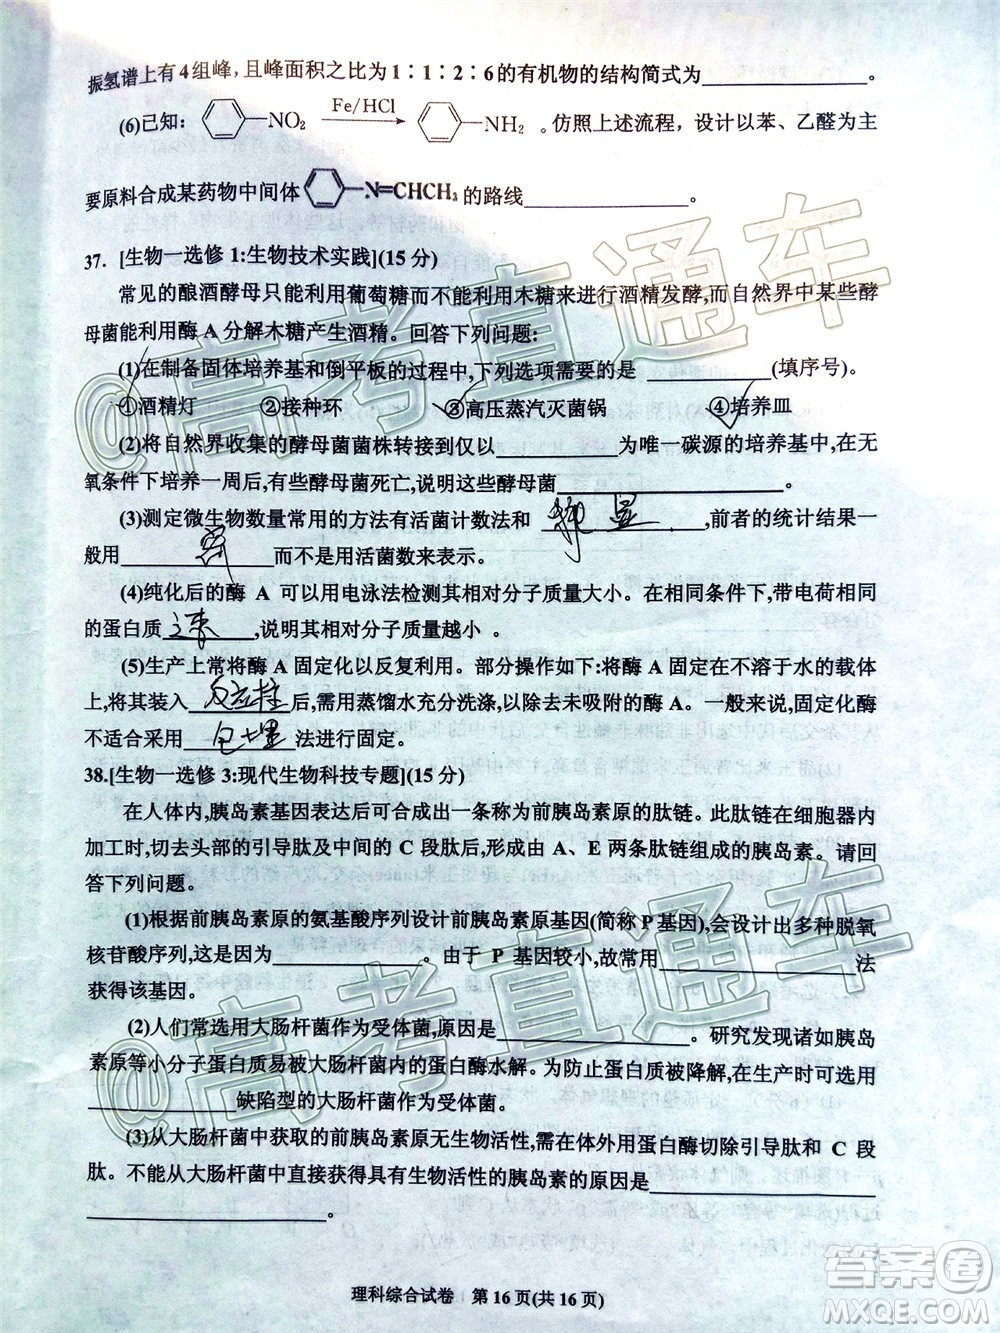 振氢谱上有4组峰，且峰面积之比为1∶1∶2∶6的有机物的结构简式为____________。
(6)已知：-NO₂ Fe/HCl -NH₂。仿照上述流程，设计以苯、乙醛为主
要原料合成某药物中间体-N=CHCH₃的路线____________。
37. [生物—选修1:生物技术实践](15分)
常见的酿酒酵母只能利用葡萄糖而不能利用木糖来进行酒精发酵,而自然界中某些酵
母菌能利用酶A分解木糖产生酒精。回答下列问题:
(1)在制备固体培养基和倒平板的过程中,下列选项需要的是____________(填序号)。
①酒精灯 ②接种环 ③高压蒸汽灭菌锅 ④培养皿
(2)将自然界收集的酵母菌菌株转接到仅以____________为唯一碳源的培养基中,在无
氧条件下培养一周后,有些酵母菌死亡,说明这些酵母菌____________。
(3)测定微生物数量常用的方法有活菌计数法和 显 ,前者的统计结果一
般用 菌 而不是用活菌数来表示。
(4)纯化后的酶 A 可以用电泳法检测其相对分子质量大小。在相同条件下,带电荷相同
的蛋白质 速 ,说明其相对分子质量越小 。
(5)生产上常将酶 A 固定化以反复利用。部分操作如下:将酶 A 固定在不溶于水的载体
上,将其装入 反应柱 后,需用蒸馏水充分洗涤,以除去未吸附的酶 A。一般来说,固定化酶
不适合采用 包埋 法进行固定。
38.[生物—选修3:现代生物科技专题](15分)
在人体内,胰岛素基因表达后可合成出一条称为前胰岛素原的肽链。此肽链在细胞器内
加工时,切去头部的引导肽及中间的 C 段肽后,形成由 A、E 两条肽链组成的胰岛素。请回
答下列问题。
(1)根据前胰岛素原的氨基酸序列设计前胰岛素原基因(简称P基因),会设计出多种脱氧
核苷酸序列,这是因为____________。由于 P 基因较小,故常用____________法
获得该基因。
(2)人们常选用大肠杆菌作为受体菌,原因是____________。研究发现诸如胰岛
素原等小分子蛋白质易被大肠杆菌内的蛋白酶水解。为防止蛋白质被降解,在生产时可选用
____________缺陷型的大肠杆菌作为受体菌。
(3)从大肠杆菌中获取的前胰岛素原无生物活性,需在体外用蛋白酶切除引导肽和 C 段
肽。不能从大肠杆菌中直接获得具有生物活性的胰岛素的原因是____________
____________。
理科综合试卷 第16页(共16页)
@高考直通车
@高考直通车
答案圈
MXQE.COM